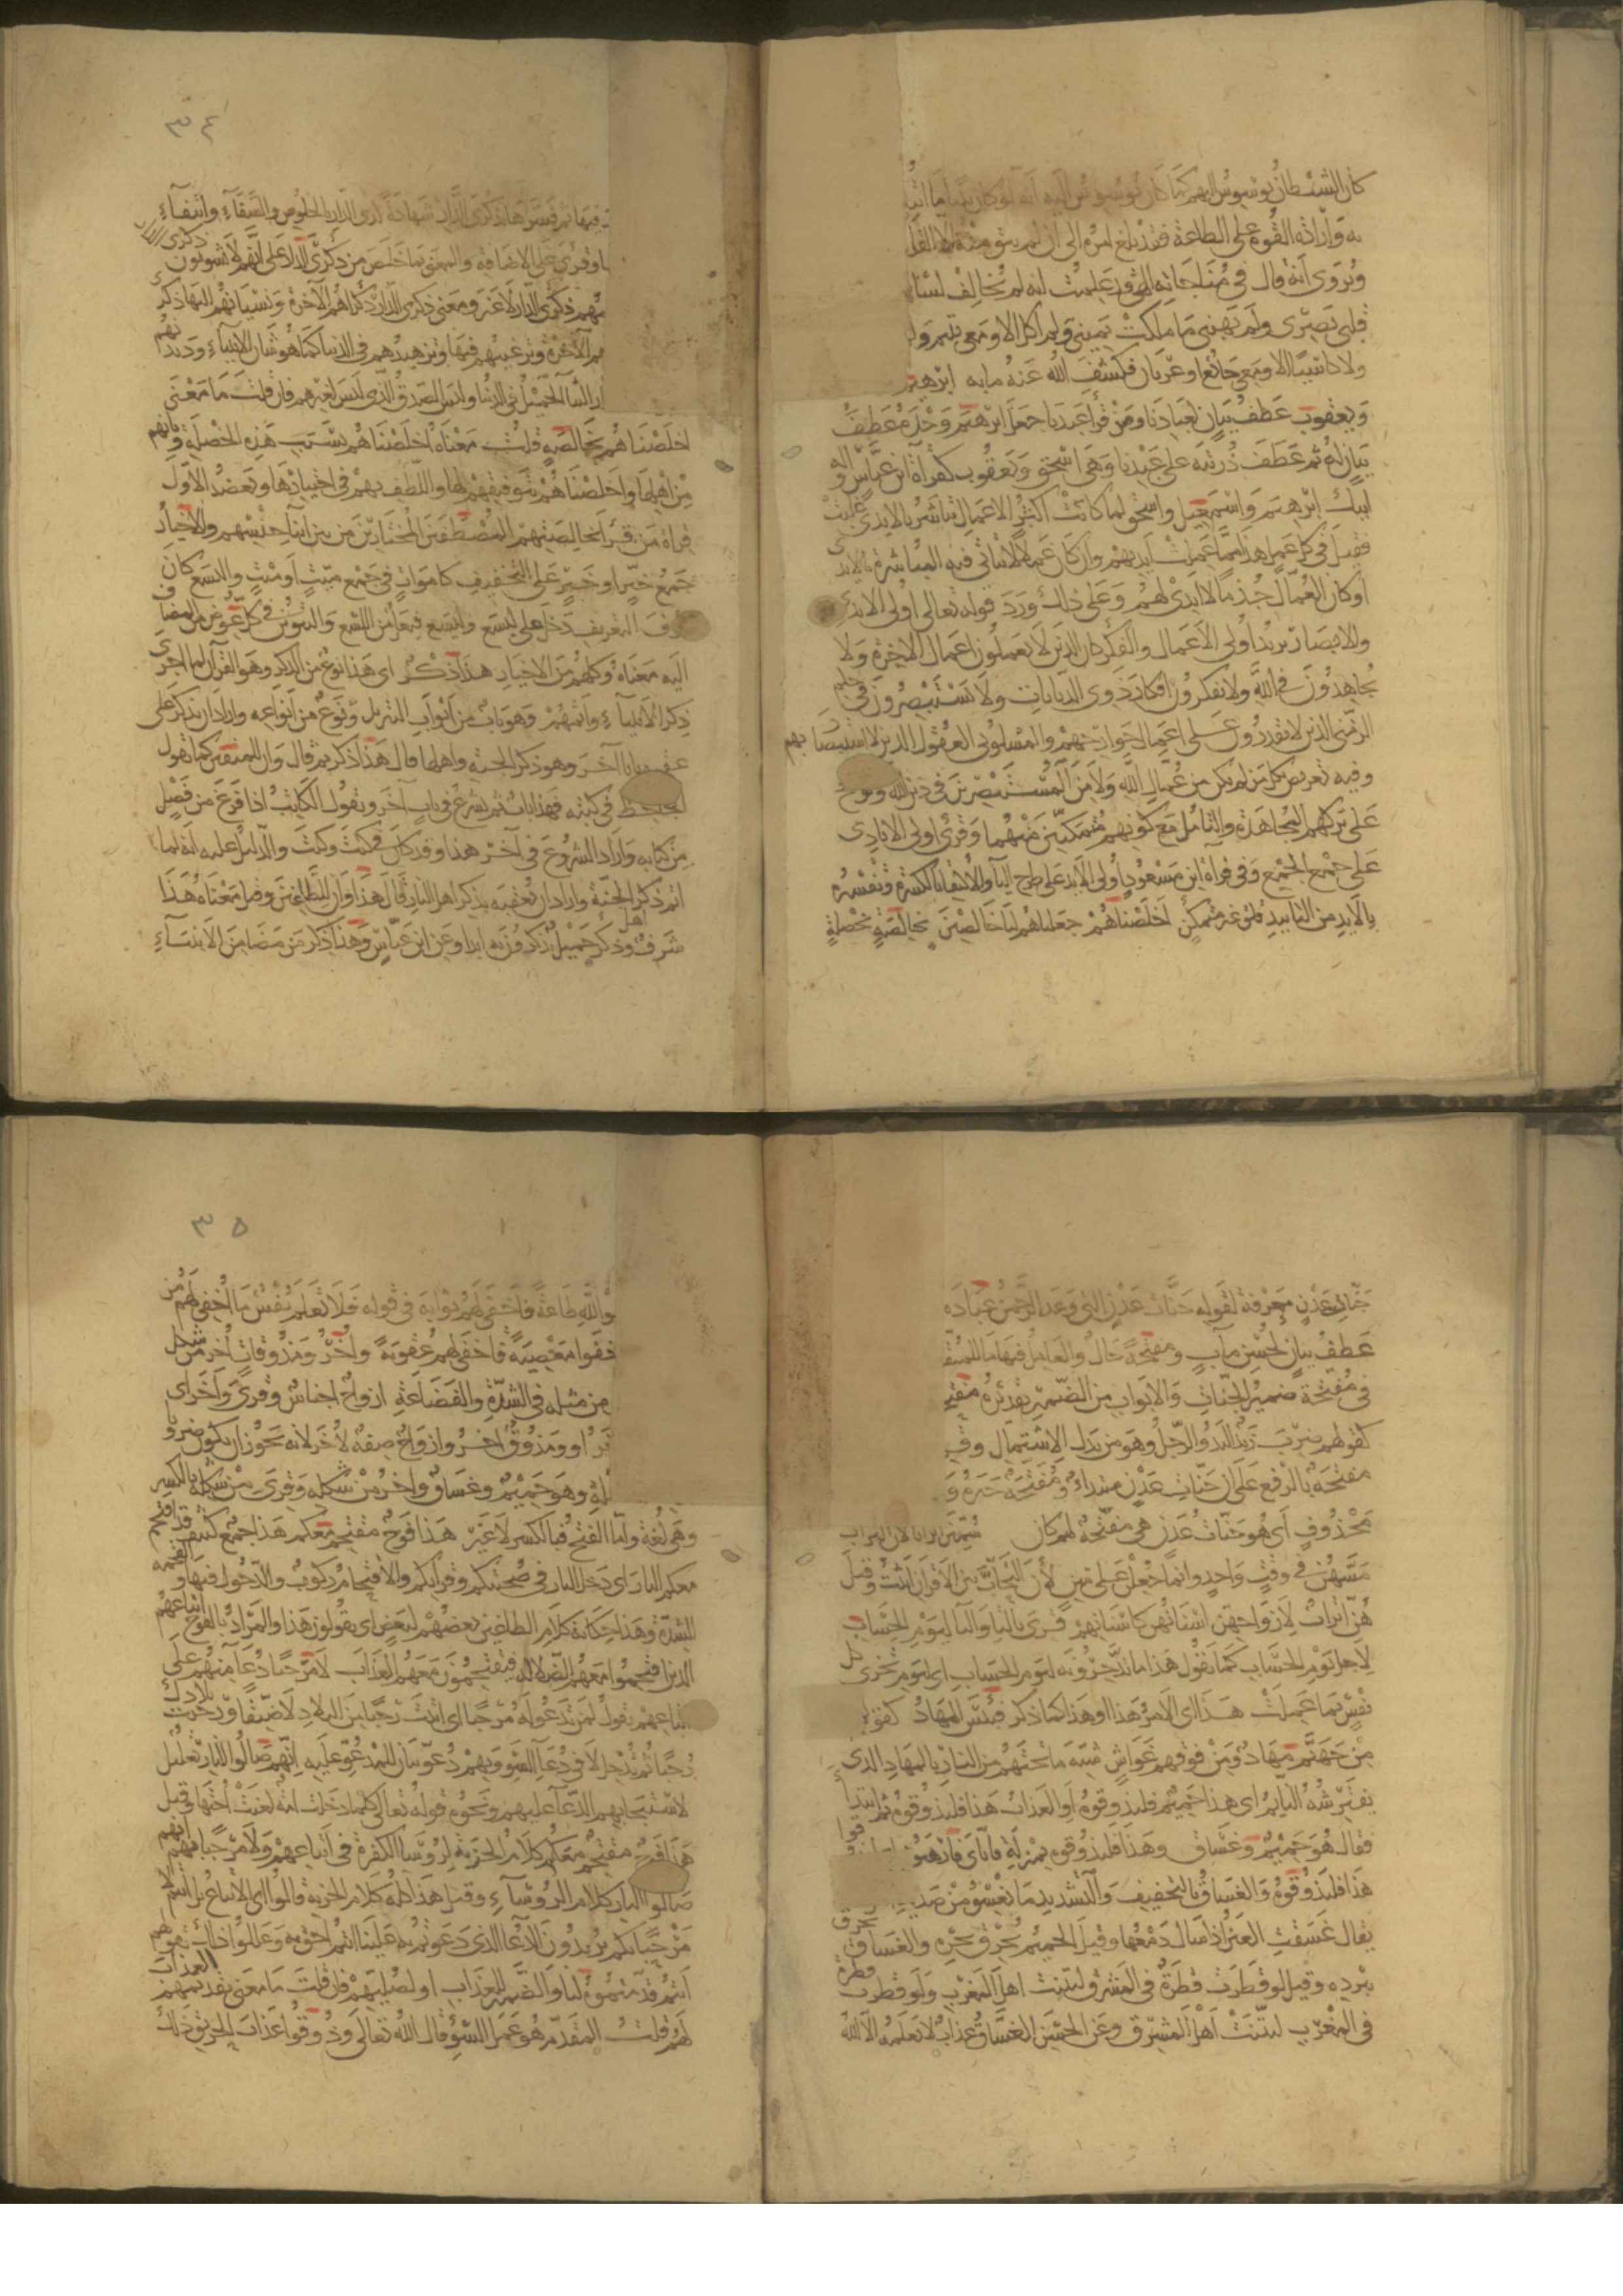 كان الشيطان يوسوس اليهم كما كان يوسوس اليه انه لو كان نبيا لما ابتلى
به وارادة القوة على الطاعة فقد بلغ امره الى ان لم يبق منه الا القلب
ويروى انه قال في مناجاته الهى قد علمت انه لم يخالف لسانى
قلبى بصرى ولم يهبنى ما ملكت يمينى ولم اكل الا ومعى يتيم ولم
ولا كاسيا الا ومعى جائع او عريان فكشف الله عنه ما به ابرهيم
ويعقوب عطف بيان لعبادنا ومن قرا عبدنا جعل ابرهيم وحده عطف
بيان له ثم عطف ذريته على عبدنا وهى اسحق ويعقوب كقراة ابن عباس واله
ابيك ابرهيم واسمعيل واسحق لما كانت اكثر الاعمال تباشر بالايدى غلبت
فقيل في كل عمل هذا مما عملت ايديهم وان كان عملا لا يتاتى فيه المباشرة بالايدى
او كان العمال جذما لا ايدى لهم وعلى ذلك ورد قوله تعالى اولى الايدى
والابصار يريد اولى الاعمال والفكر كان الذين لا يعملون اعمال الاخرة ولا
يجاهدون في الله ولا يفكرون افكار ذوى الديانات ولا يستبصرون في حكم
الزمنى الذين لا يقدرون على اعمال جوارحهم والمسلوبى العقول الذين لا استبصار بهم
وفيه تعريض بكل من لم يكن من عمال الله ولا من المستبصرين في دين الله وتوبيخ
على تركهم المجاهدة والتامل مع كونهم متمكنين منهما وقرئ اولى الايادى
على جمع الجمع وفى قراة ابن مسعود اولى الايد على طرح اليا والاكتفا بالكسرة وتفسيره
بالايد من التاييد قلق غير متمكن اخلصناهم جعلناهم لنا خالصين بخالصة بخصلة
٣٤
فيها ثم فسرها بذكرى الدار شهادة لذكرى الدار بالخلوص والصفاء وانتفاء
وقرئ على الاضافة والمعنى بما خلص من ذكرى الدار على انهم لا يشوبون ذكرى الدار
بهم ذكرى الدار لا غير ومعنى ذكرى الدار ذكراهم الاخرة ونسيانهم اليها ذكر
هم الاخرة وترغيبهم فيها وتزهيدهم في الدنيا كما هو شان الانبياء وديدنهم
الثنا الجميل في الدنيا ولسان الصدق الذى ليس لغيرهم فان قلت ما معنى
اخلصناهم بخالصة قلت معناه اخلصناهم بسبب هذه الخصلة وبانهم
من اهلها واخلصناهم بتوفيقهم لها واللطف بهم في اختيارها ويعضد الاول
قراة من قرا بخالصتهم المصطفين المختارين من بين ابنا جنسهم والاخيار
جمع خير او خير على التخفيف كاموات في جمع ميت او ميت واليسع كان
حرف التعريف دخل على ليسع واليسع فيعل من اللسع والتنوين في كل عوض من المضاف
اليه معناه وكلهم من الاخيار هذا ذكر اى هذا نوع من الذكر وهو القران لما اجرى
ذكر الانبياء واتمهم وهو باب من ابواب التنزيل ونوع من انواعه واراد ان يذكر على
عقبه بابا آخر وهو ذكر الجنة واهلها قال هذا ذكر ثم قال وان للمتقين كما يقول
الجاحظ في كتبه فهذا باب ثم يشرع في باب آخر ويقول الكاتب اذا فرغ من فصل
من كتابه واراد الشروع في آخر هذا وقد كان كيت وكيت والدليل عليه انه لما
اتم ذكر اهل الجنة واراد ان يعقبه بذكر اهل النار قال هذا وان للطاغين وقيل معناه هذا
شرف وذكر جميل يذكرون به ابدا وعن ابن عباس هذا ذكر من مضى من الانبياء
جنات عدن معرفة لقوله جنات عدن التى وعد الرحمن عباده
عطف بيان لحسن مآب ومفتحة حال والعامل فيها ما للمتقين
في مفتحة ضمير الجنات والابواب من الضمير تقديره مفتحة
كقولهم ضرب زيد اليد والرجل وهو من بدل الاشتمال وقرئ
مفتحة بالرفع على ان جنات عدن مبتداء ومفتحة خبره و
محذوف اى هو جنات عدن هى مفتحة لهم كان سمين اترابا لان التراب
مسهن في وقت واحد وانما جعلن على سن لان التحاب بين الاقران اثبت وقيل
هن اتراب لازواجهن اسنانهن كاسنانهم قرئ بالتا واليا ليوم الحساب
لاجل يوم الحساب كما تقول هذا ما تدخرونه ليوم الحساب اى ليوم تجزى كل
نفس بما عملت هذا اى الامر هذا او هذا كما ذكر فبئس المهاد كقوله
من جهنم مهاد ومن فوقهم غواش شبه ما تحتهم من النار بالمهاد الذى
يفترشه النايم اى هذا حميم فليذوقوه او العذاب هذا فليذوقوه ثم ابتدا
فقال هو حميم وغساق وهذا فليذوقوه بمنزلة فاياى فارهبون
هذا فليذوقوه والغساق بالتخفيف والتشديد ما يغسق من صديد
يقال غسقت العين اذا سال دمعها وقيل الحميم يحرق بحره والغساق يحرق
ببرده وقيل لو قطرت قطرة في المشرق لنتنت اهل المغرب ولو قطرت قطرة
في المغرب لنتنت اهل المشرق وعن الحسن الغساق عذاب لا يعلمه الا الله
٣٥
والله طاعة فاخفى لهم ثوابه في قوله فلا تعلم نفس ما اخفى لهم من
فقوا معصية فاخفى لهم عقوبة واخر ومذوقات اخر من شكل
من مثله في الشدة والفضاعة ازواج اجناس وقرئ واخر اى
او ومذوق اخر وازواج صفة لاخر لانه يجوز ان يكون ضروبا
وهو حميم وغساق واخر من شكله وقرئ من شكله بالكسر
وهى لغة واما الفتح فبالكسر لا غير هذا فوج مقتحم معكم هذا جمع كثيف قد اقتحم
معكم النار اى دخل النار في صحبتكم وقرانكم والاقتحام ركوب الشدة والدخول فيها والقحمة
الشدة وهذا حكاية كلام الطاغين بعضهم لبعض اى يقولون هذا والمراد بالفوج اتباعهم
الذين اقتحموا معهم الضلالة فيقتحمون معهم العذاب لا مرحبا دعا منهم على
اتباعهم تقول لمن تدعو له مرحبا اى اتيت رحبا من البلاد لا ضيقا ورحبت بلادك
رحبا ثم تدخل لا في دعا السو وبهم دعو بيان للمدعو عليه انهم صالوا النار تعليل
لاستيجابهم الدعا عليهم ونحوه قوله تعالى كلما دخلت امة لعنت اختها وقيل
هذا فوج مقتحم معكم كلام الخزنة لروسا الكفرة في اتباعهم ولا مرحبا بهم انهم
صالوا النار كلام الروساء وقيل هذا كله كلام الخزنة قالوا اى الاتباع بل انتم لا
مرحبا بكم يريدون الدعا الذى دعوتم به علينا انتم احق به وعللوا ذلك بقولهم
انتم قدمتموه لنا والضمير للعذاب او لصليهم فان قلت ما معنى تقديمهم العذاب
لهم قلت المقدم هو عمل السوء قال الله تعالى وذوقوا عذاب الحريق ذلك